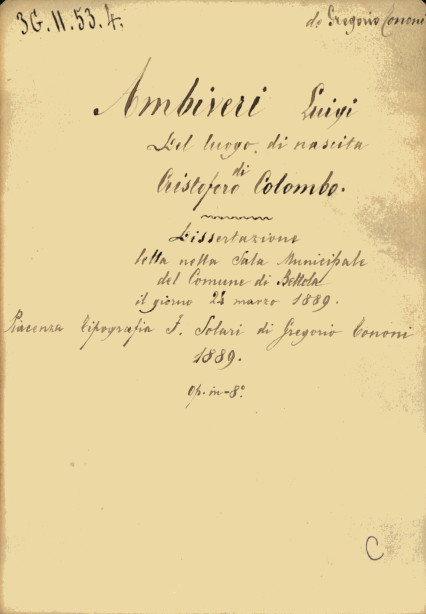 3G.II.53.4.
de Gregorio Cononi
Ambiveri Luigi
Del luogo di nascita
di
Cristoforo Colombo.
Dissertazione
letta nella Sala Municipale
del Comune di Bettola
il giorno 24 marzo 1889.
Piacenza Tipografia F. Solari di Gregorio Cononi
1889.
Op. in-8º
C